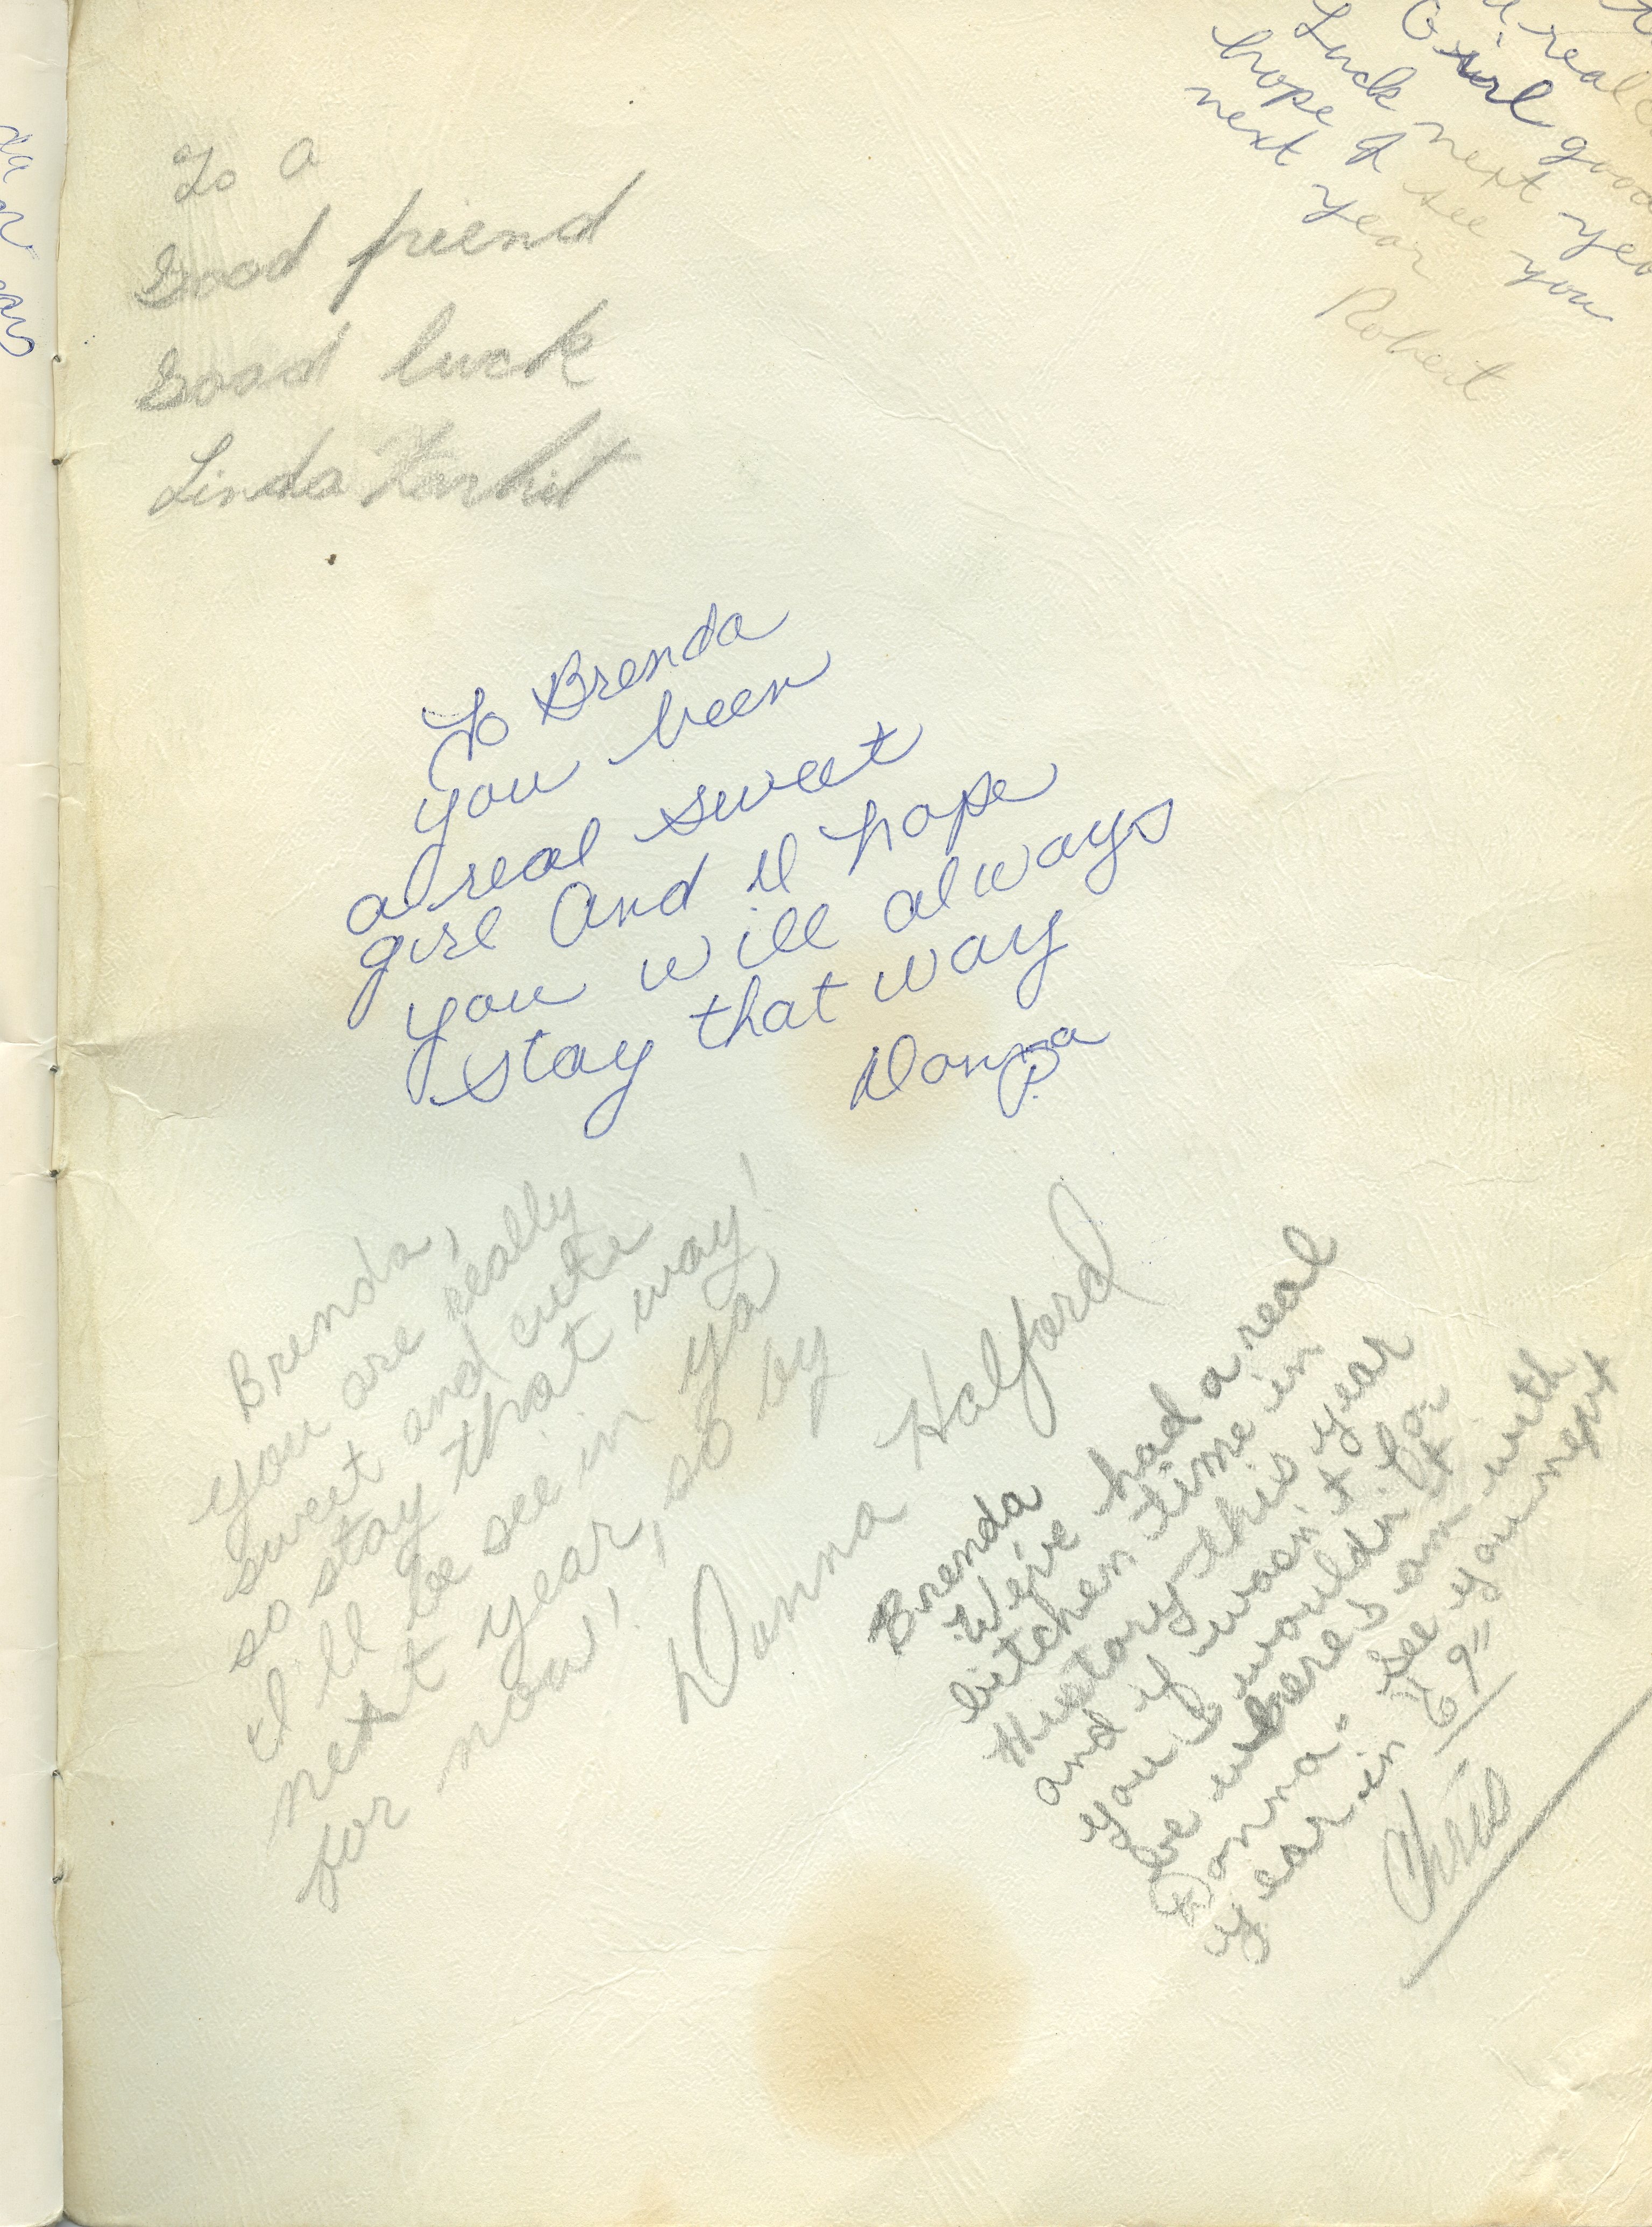 real
Girl good
Luck next yea
hope I see you
next year
Robert
To a
Good friend
Good luck
Linda
To Brenda
you been
a real sweet
girl And I hope
you will always
stay that way
Donna
B.
Brenda,
you are really
sweet and cute
so stay that way!
I'll be see in ya
next year, so by
for now!
Donna Halford
Brenda
We've had a real
bitchen time in
History this year
and if wasn't for
you I wouldn't
be wheres am with
Donna. See you next
year in "69"
Chris